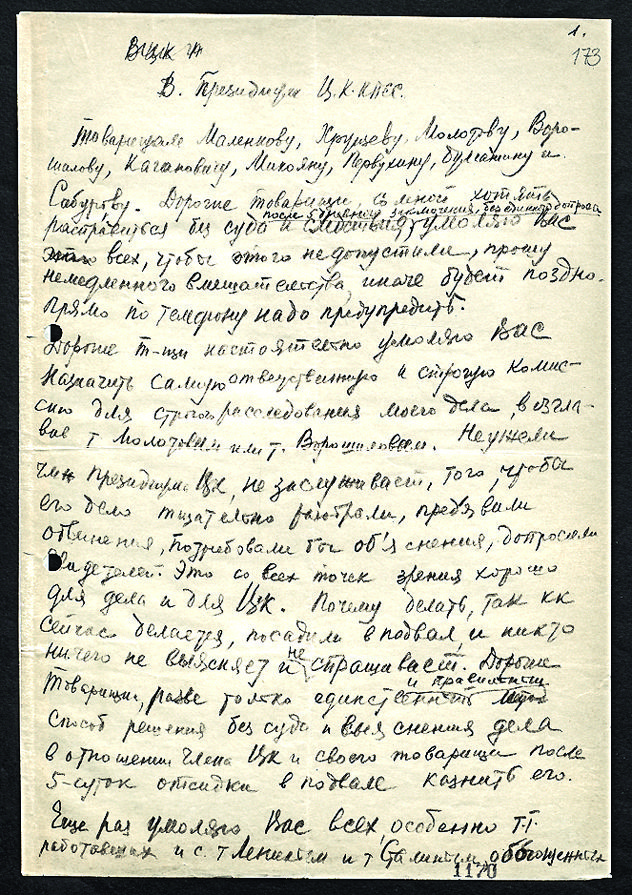 1.
173
В ЦК
В Президиум Ц.К. КПСС.
Товарищам Маленкову, Хрущеву, Молотову, Воро-
шилову, Кагановичу, Микояну, Первухину, Булганину и
Сабурову. Дорогие товарищи, со мной хотять
после заключения, без единого допроса
расправиться без суда и следствия, умоляю Вас
всех, чтобы этого недопустили, прошу
немедленного вмешательства, иначе будет поздно.
Прямо по телефону надо предупредить.
Дорогие т-щи настоятельно умоляю Вас
назначить самую ответственную и строгую комис-
сию для строгого расследования моего дела, возгла-
ве т. Молотовым или т. Ворошиловым. Неужели
член Президиума Цк, не заслуживает, того, чтобы
его дело тщательно разобрали, предявили
обвинения, потребовали бы об'яснения, допросили
свидетелей. Это со всех точек зрения хорошо
для дела и для Цк. Почему делать, так кк
сейчас делается, посадили в подвал и никто
ничего не выясняет и не спрашивает. Дорогие
и правильный
товарищи, разве только единственный
способ решения без суда и выяснения дела
в отношении члена Цк и своего товарища после
5-суток отсидки в подвале казнить его.
Еще раз умоляю Вас всех, особенно т.т.
работавших и с т Лениным и т Сталиным,
1170